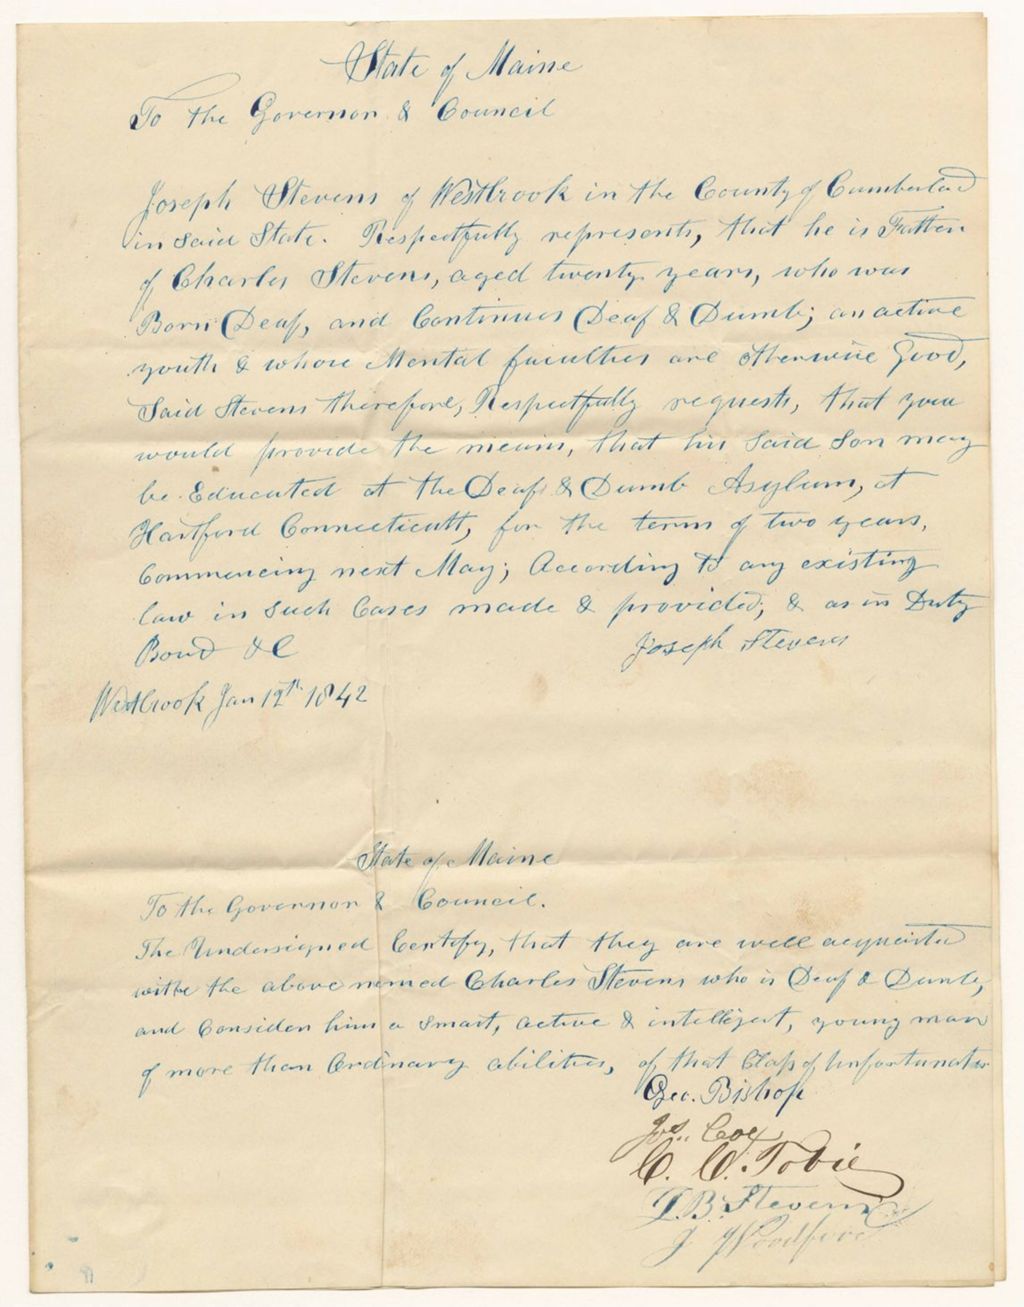 State of Maine
To the Governor & Council
Joseph Stevens of Westbrook in the County of Cumberland
in said State. Respectfully represents, that he is Father
of Charles Stevens, aged twenty years, who was
Born Deaf, and Continues Deaf & Dumb; an active
youth & whose Mental faculties are otherwise Good,
Said Stevens therefore, Respectfully requests, that you
would provide the means, that his Said Son may
be Educated at the Deaf & Dumb Asylum, at
Hartford Connecticutt, for the term of two years,
Commencing next May; According to any existing
law in such Cases made & provided; & as in Duty
Bound &C
Joseph Stevens
Westbrook Jan 12th 1842
State of Maine
To the Governor & Council.
The Undersigned Certify, that they are well acquainted
with the above named Charles Stevens who is Deaf & Dumb,
and Consider him a Smart, active & intelligent, young man
of more than Ordinary abilities, of that Class of Unfortunates
Geo. Bishop
Jos. Cox
C. C. Tobie
Stevens
J Woodford